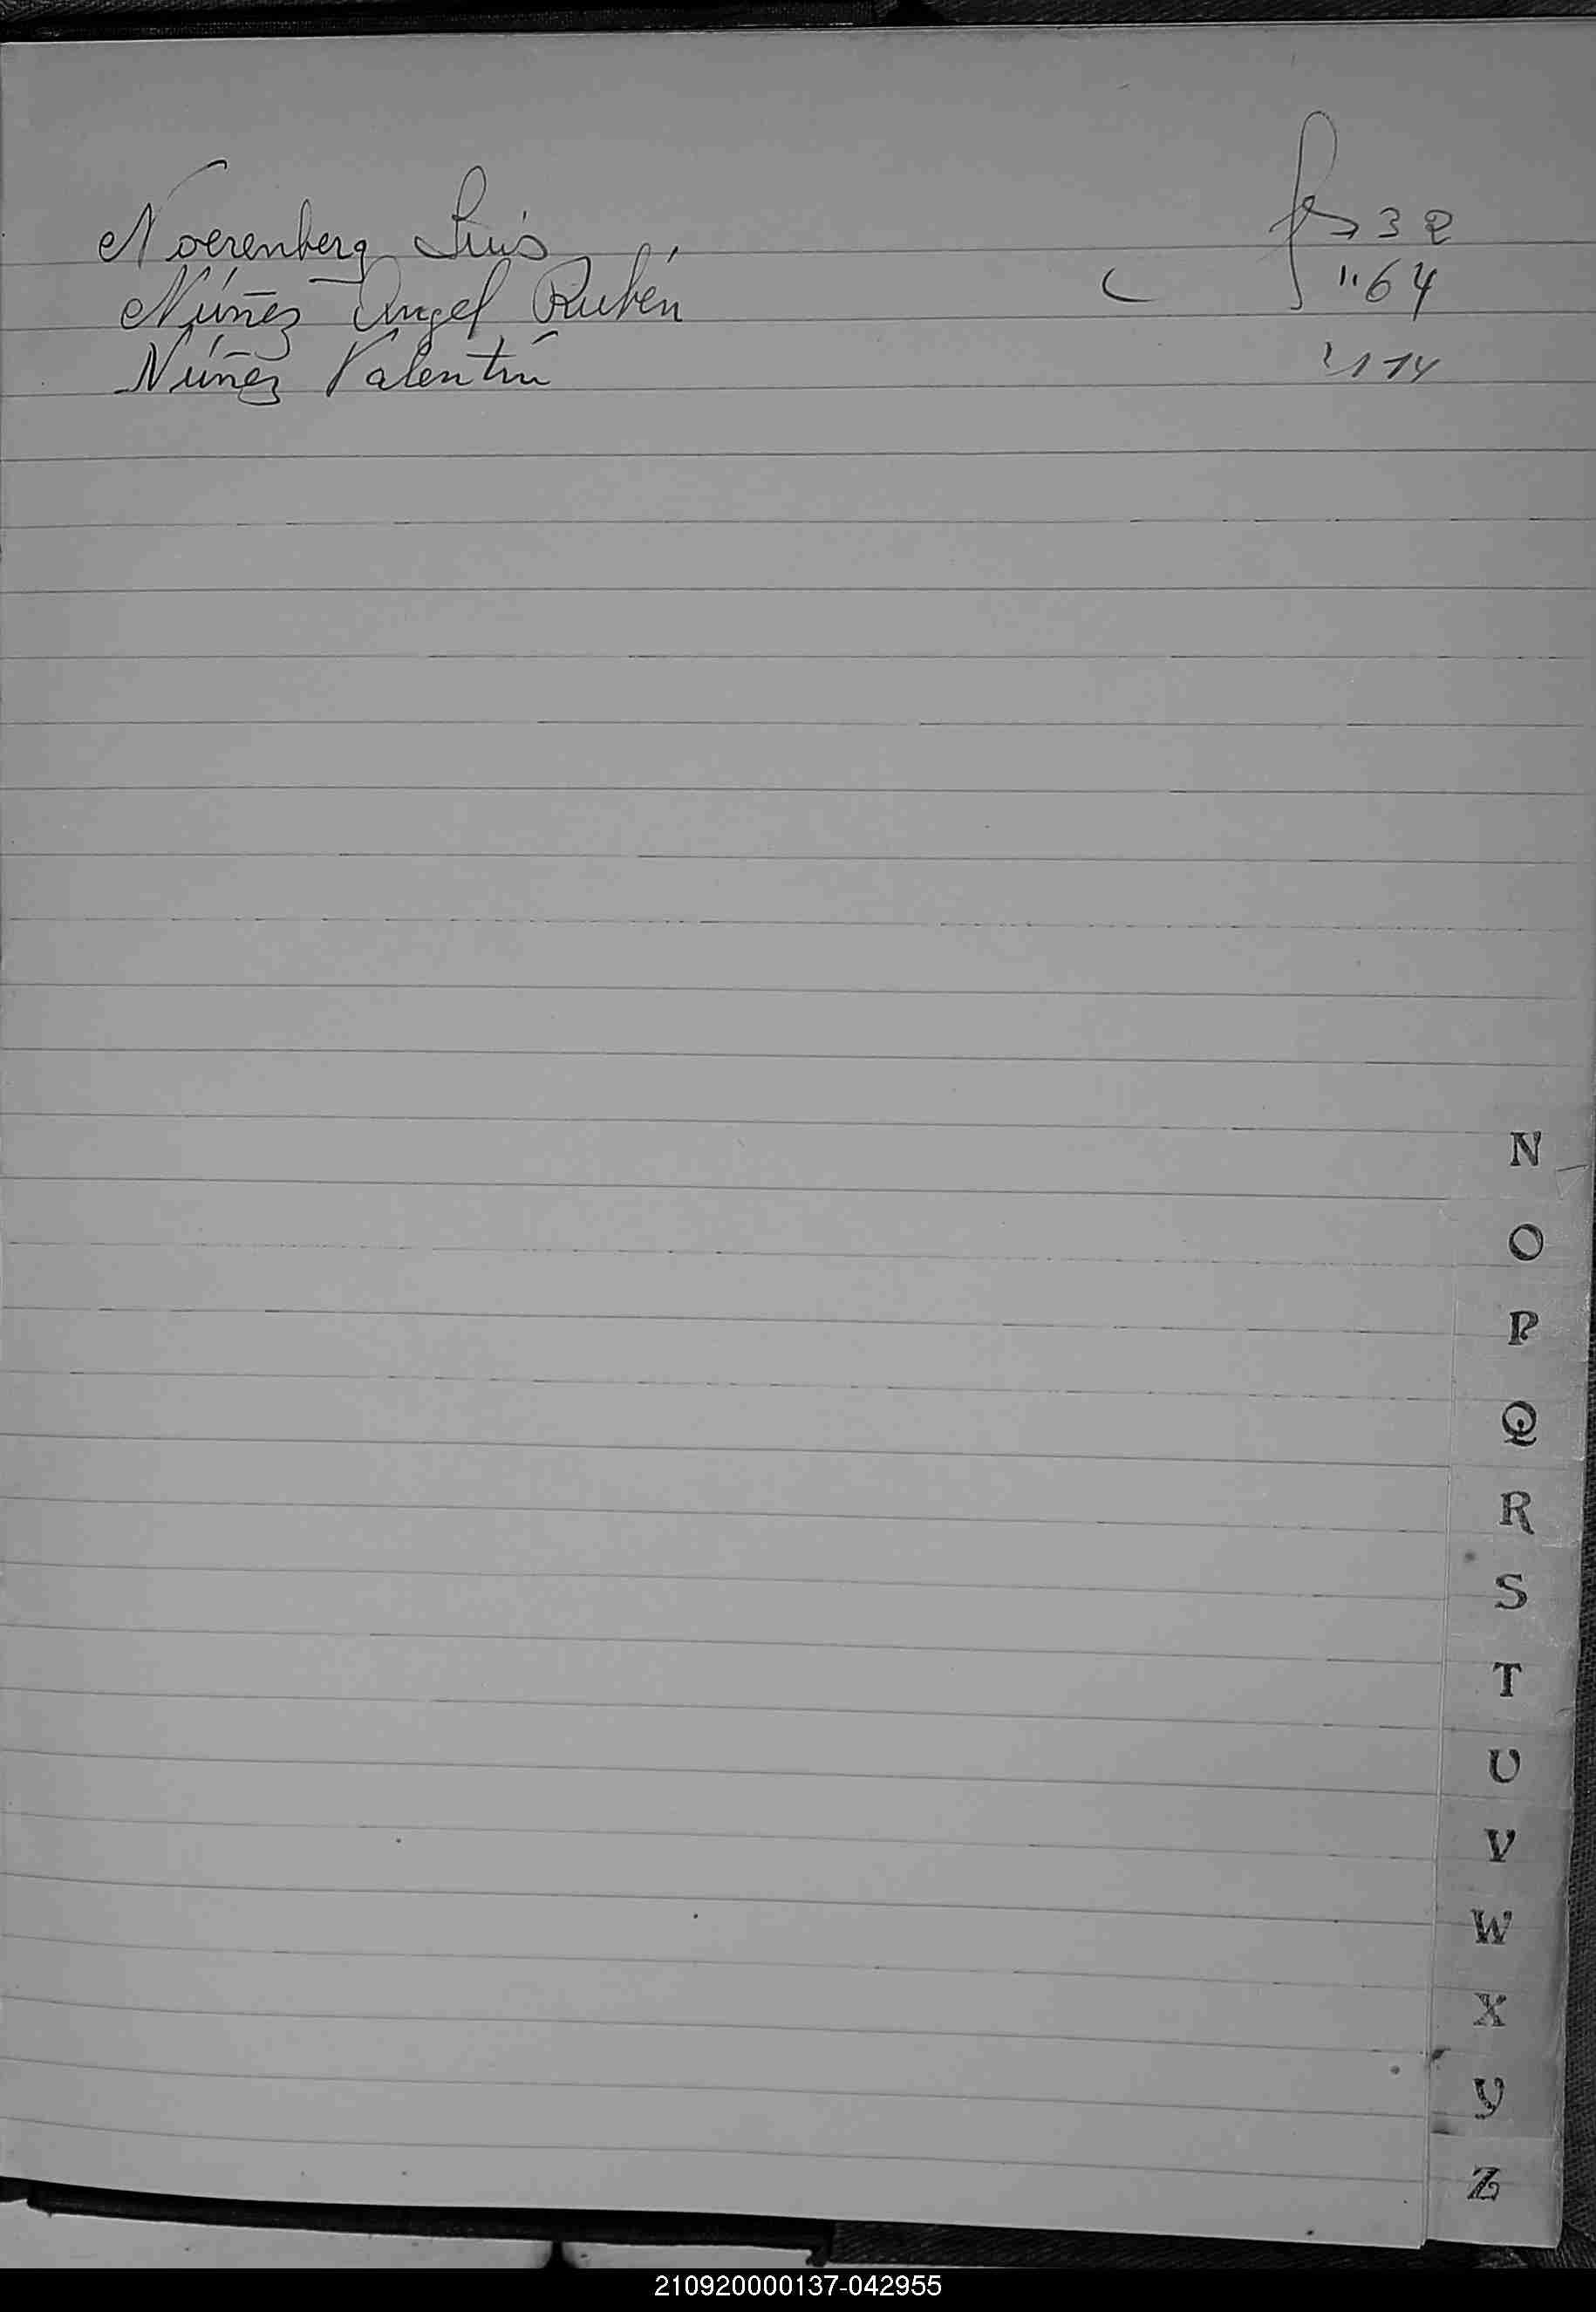 Noerenberg Luis fs 32
Núñez Angel Rubén " 64
Núñez Valentín " 114
N
O
P
Q
R
S
T
U
V
W
X
Y
Z
210920000137-042955